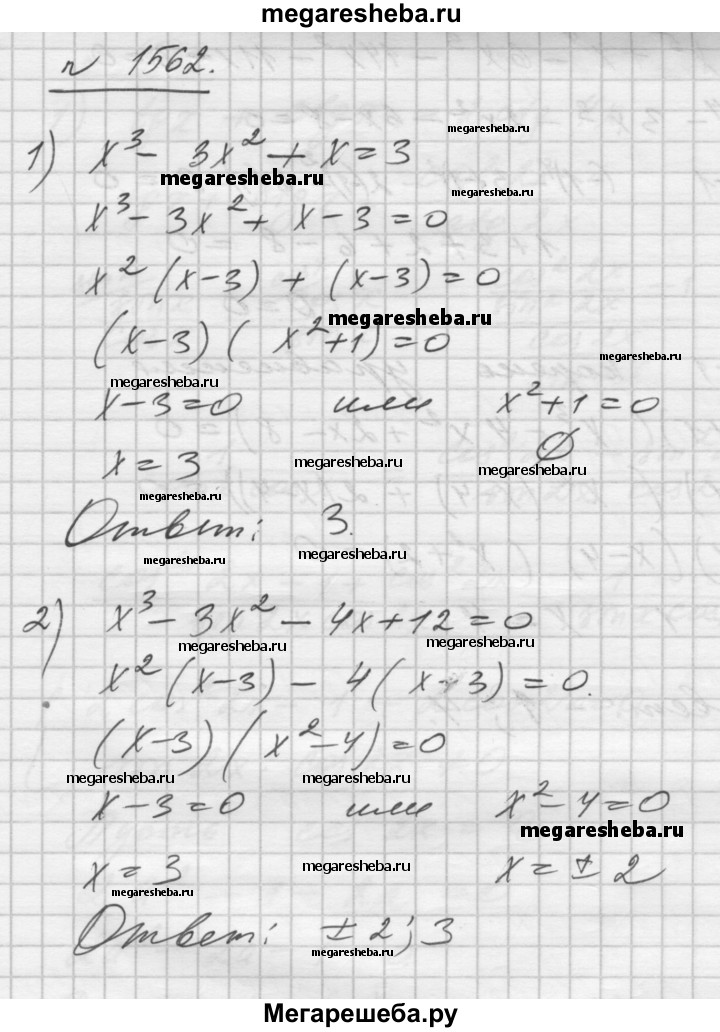 megaresheba.ru
№ 1562.
1) x³ - 3x² + x = 3
megaresheba.ru
megaresheba.ru
megaresheba.ru
x³ - 3x² + x - 3 = 0
x² (x-3) + (x-3) = 0
megaresheba.ru
(x-3) ( x²+1) = 0
megaresheba.ru
megaresheba.ru
x-3=0 или x²+1=0
∅
x = 3
megaresheba.ru
megaresheba.ru
megaresheba.ru
Ответ: 3.
megaresheba.ru
megaresheba.ru
2) x³ - 3x² - 4x+12 = 0
megaresheba.ru
megaresheba.ru
x² (x-3) - 4( x-3) = 0.
(x-3) ( x²-4) = 0
megaresheba.ru
megaresheba.ru
x-3=0 или x²-4=0
megaresheba.ru
x = 3 x = ± 2
megaresheba.ru
megaresheba.ru
Ответ: ± 2; 3
Мегарешеба.ру